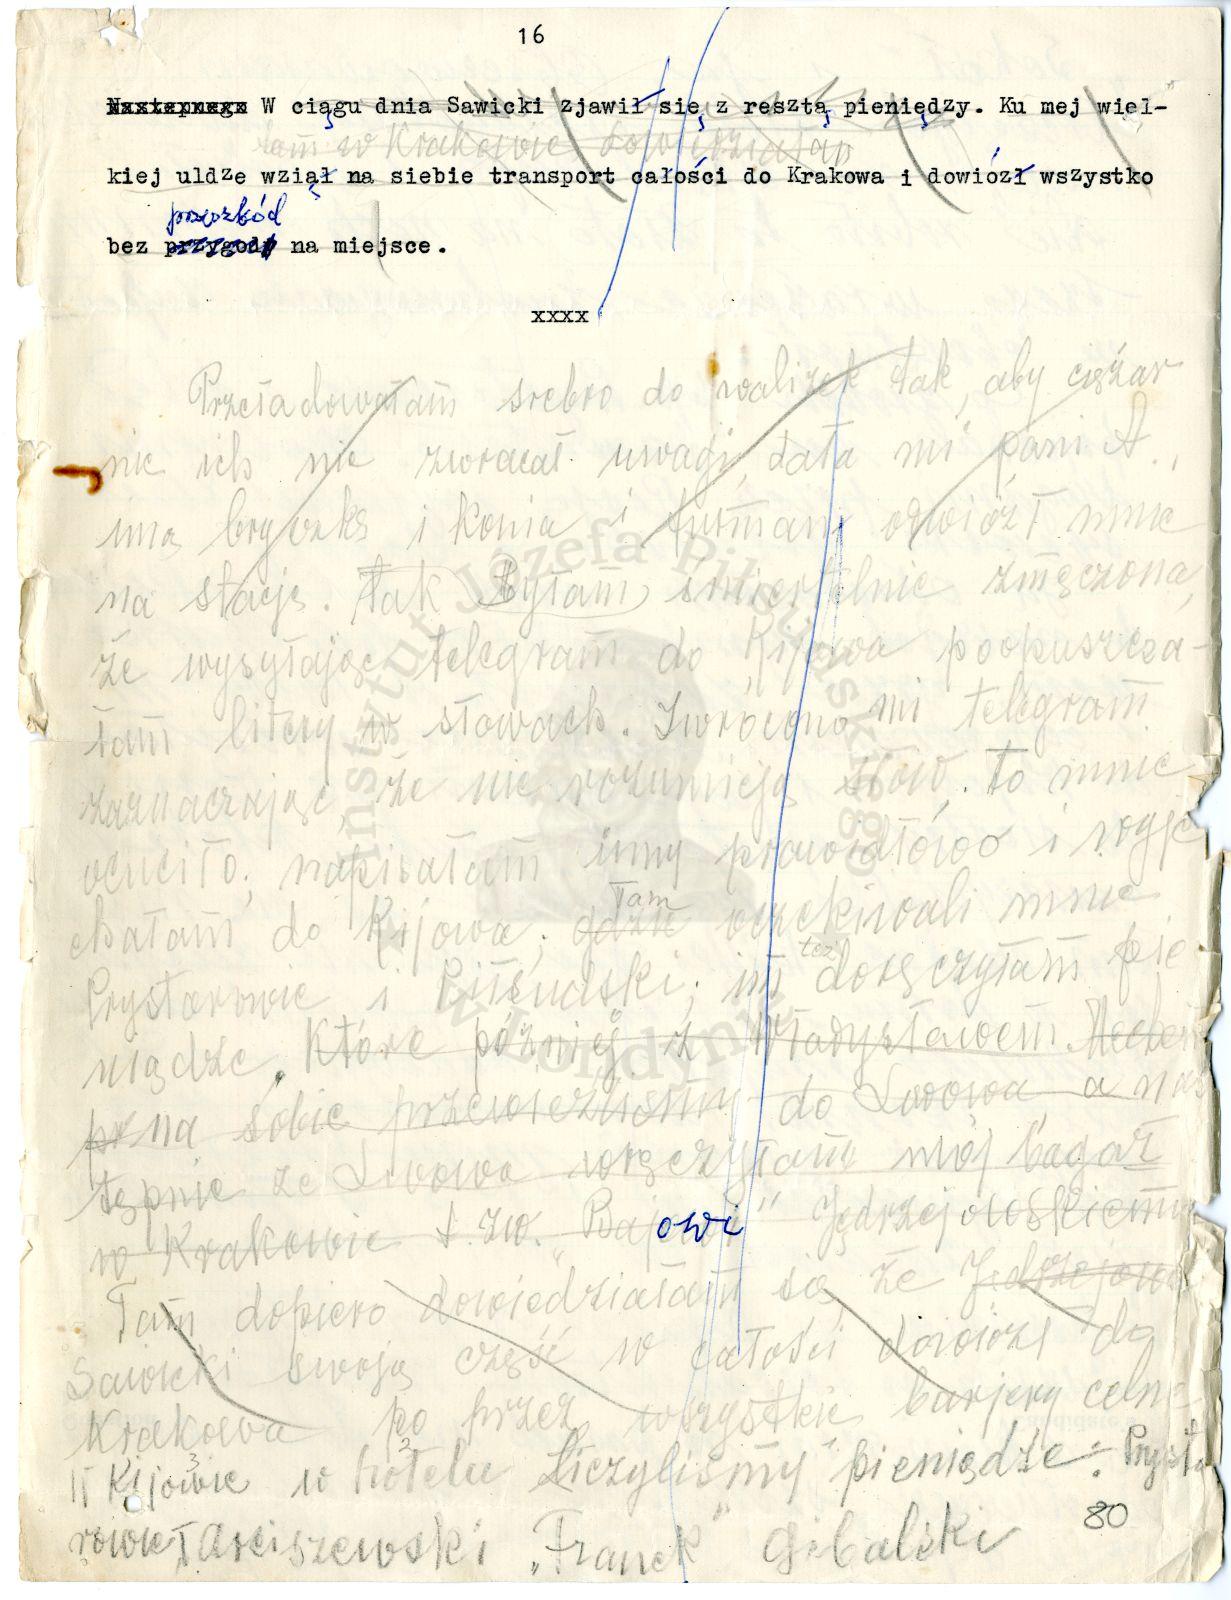 16
Następnego W ciągu dnia Sawicki zjawił się z resztą pieniędzy. Ku mej wiel-
tam w Krakowie dowiedziałam
kiej uldze wziął na siebie transport całości do Krakowa i dowiózł wszystko
przeszkód
bez przygody na miejsce.
xxxx
Przeładowałam srebro do walizek tak, aby ciężar
nie ich nie zwracał uwagi, dała mi pani A.,
mą bryczkę i konia i furman odwiózł mnie
na stację. Tak Byłam śmiertelnie zmęczona,
że wysyłając telegram do Kijowa poopuszcza-
łam litery w słowach. Zwrócono mi telegram
zaznaczając, że nie rozumieją słów. To mnie
ocuciło, napisałam inny prawidłowo i wyje
chałam do Kijowa, gdzie oczekiwali mnie
tam
Prystorowie i Piłsudski; im doręczyłam pie
też
niądze. Które później z Władysławem
na sobie przewieźliśmy do Lwowa, a nas
tępnie ze Lwowa wręczyłam mój bagaż
w Krakowie t.zw. "Bajowi" Jędrzejowskiemu
owi
Tam dopiero dowiedziałam się że Jędrzejow
Sawicki swoją część w całości dowiózł do
Krakowa po przez wszystkie barjery celne
W Kijowie w hotelu Liczyliśmy pieniądze: Prysto
rowie, Arciszewski "Franek" Gibalski
80
Instytut Józefa Piłsudskiego
w Londynie